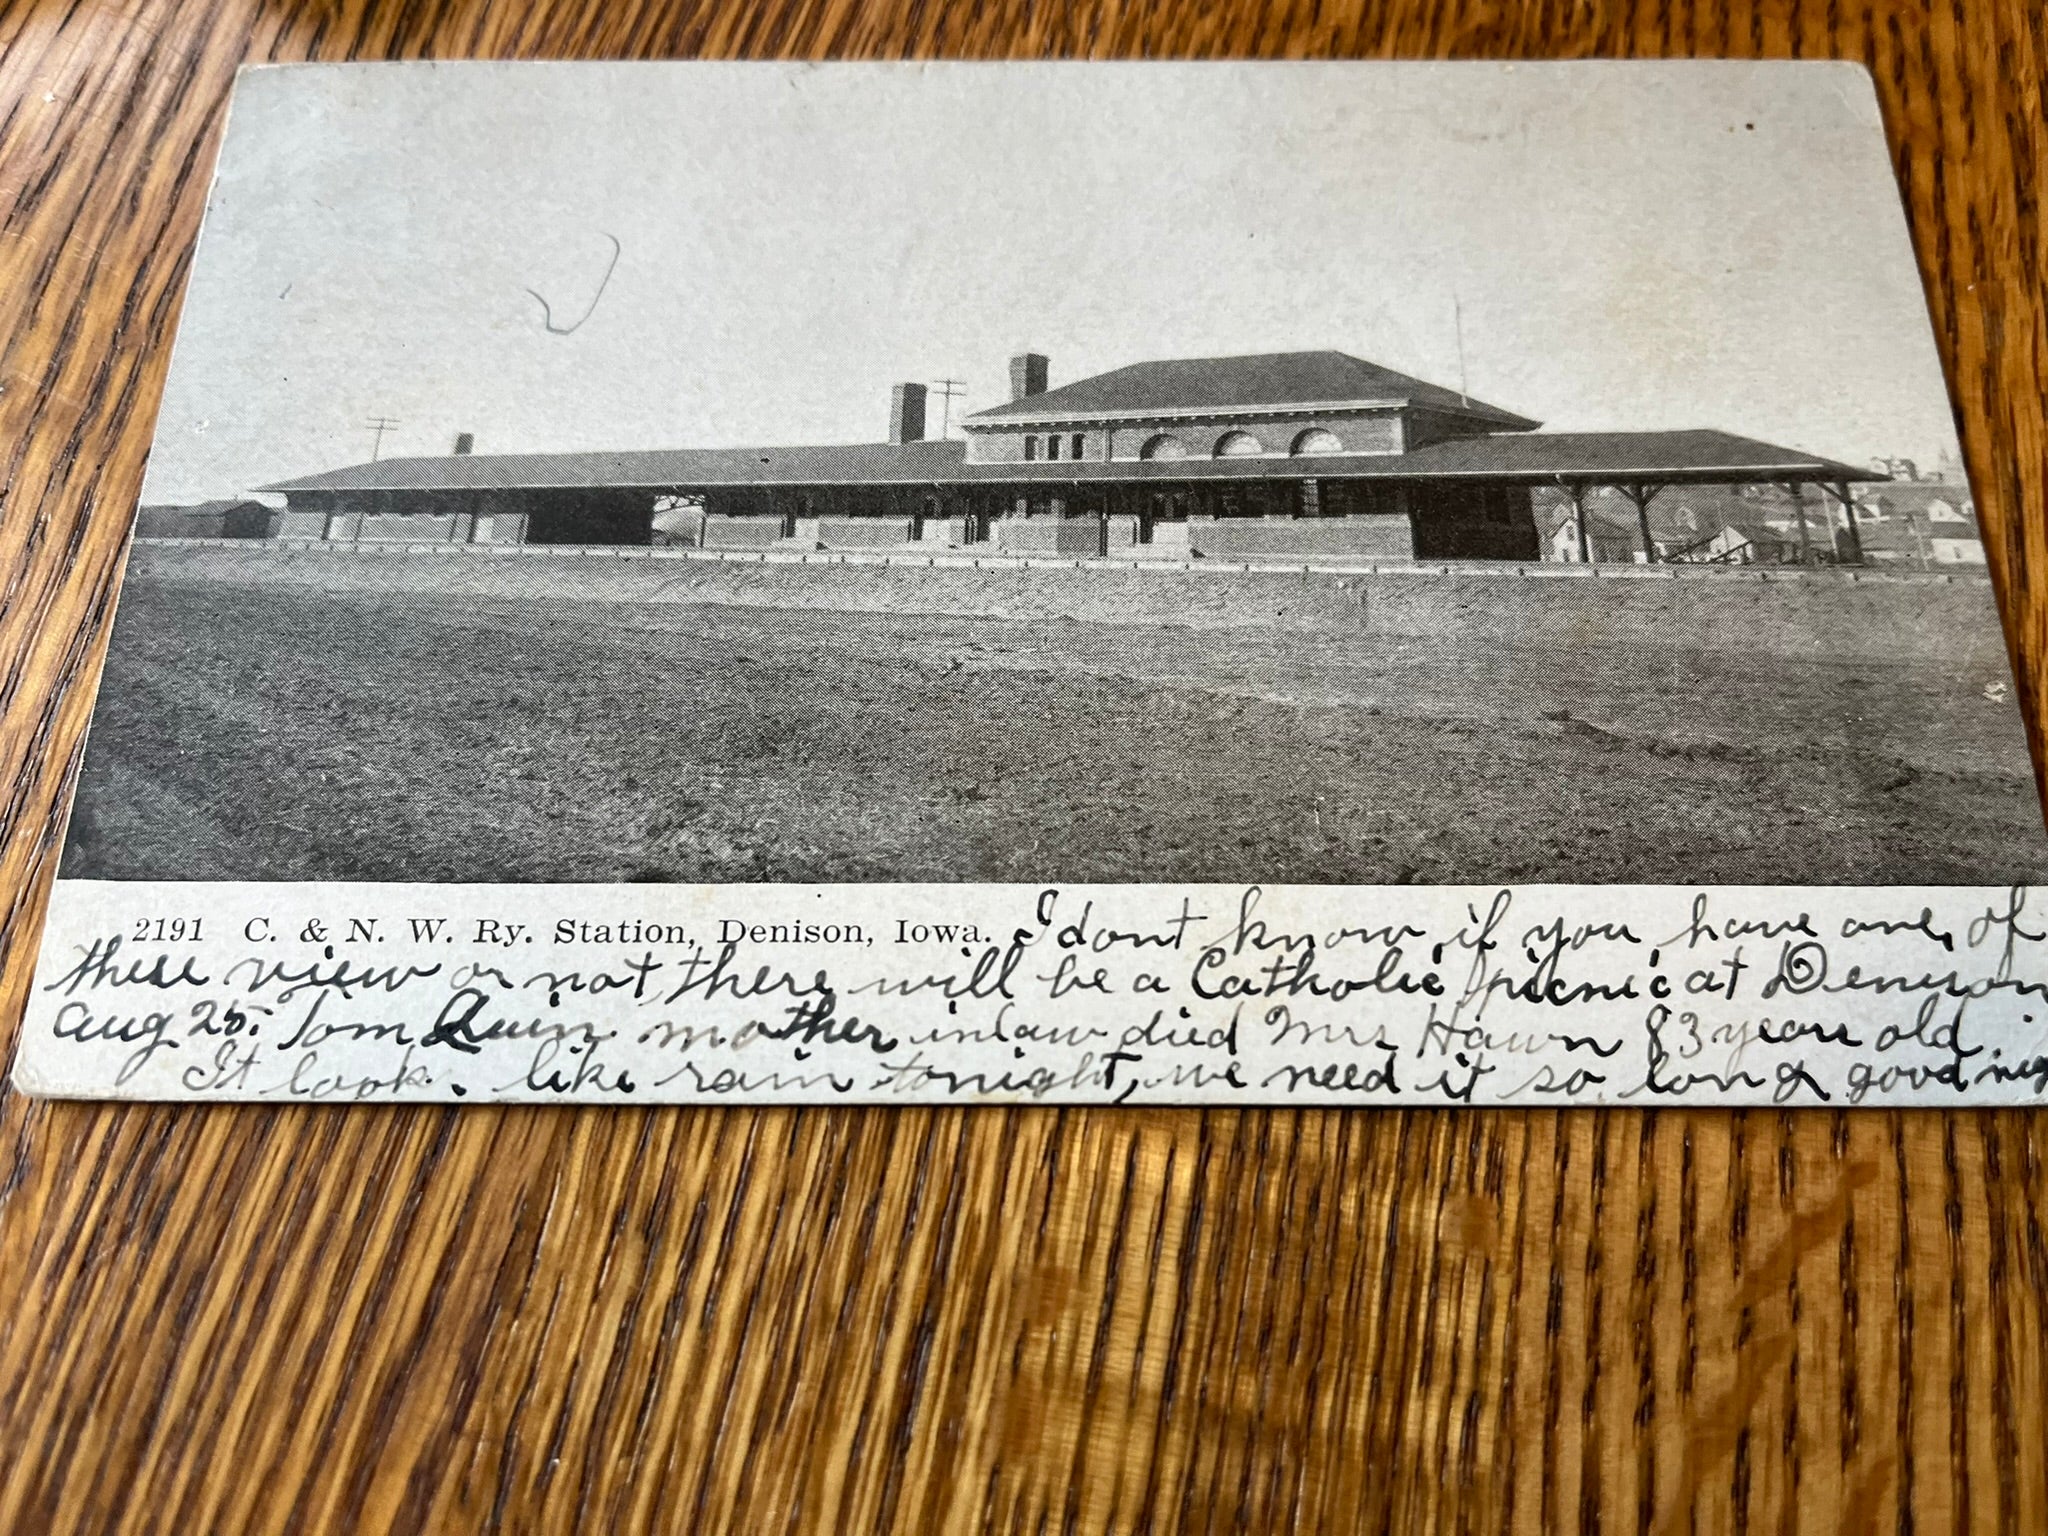 2191 C. & N. W. Ry. Station, Denison, Iowa. I dont know if you have one of
these view or not there will be a Catholic picnic at Denison
Aug 25. Tom Quin mother inlaw died Mrs Hawn 83 years old.
It look. like rain tonight, we need it so long good nig